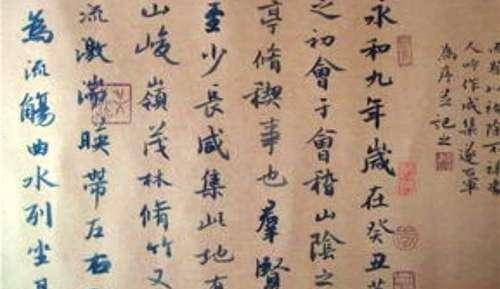 人吟作成集遂右軍
為序記之
永和九年歲在癸丑
之初會于會稽山陰之
亭脩禊事也羣賢
至少長咸集此地有
山峻嶺茂林脩竹又
流激湍暎帶左右
為流觴曲水列坐其